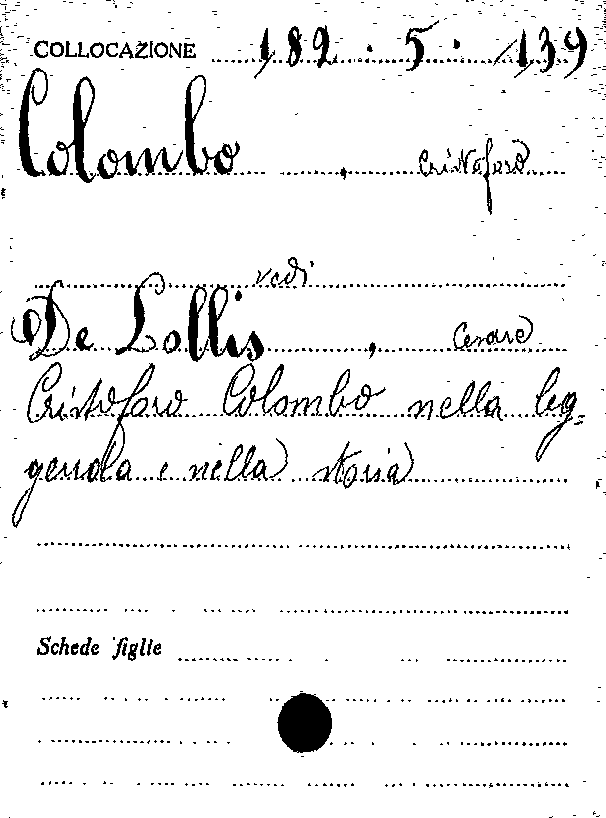 COLLOCAZIONE 182 . 5 . 139
Colombo , Cristoforo
vedi
De Lollis , Cesare
Cristoforo Colombo nella leg=
genda e nella storia
Schede figlie